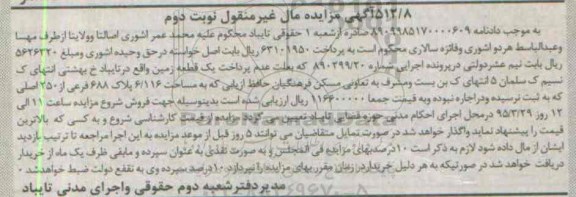 ۵۱۲/۸ آگهی مزایده مال غیرمنقول نوبت دوم
به موجب دادنامه ۸۹۰۹۹۸۵۱۷۰۰۰۰۶۰۹ صادره از شعبه ۱ حقوقی تایباد محکوم علیه محمد عمر اشوری اصالتا وولایتا ازطرف مهسا
وعبدالباسط هر دو اشوری وفائزه سالاری محکوم است به پرداخت ۶۳۱۰۱۹۵۰ ریال بابت اصل خواسته درحق وحیده اشوری ومبلغ ۵۶۲۶۳۲۰
ریال بابت نیم عشردولتی درپرونده اجرایی شماره ۸۹۰۳۹۹/۲۰ که بعلت عدم پرداخت یک قطعه زمین واقع درتایباد خ بهشتی انتهای ک
نسیم ک سلمان ۵ انتهای ک بن بست ومشرف به تعاونی مسکن فرهنگیان حافظ ارزیابی که به مساحت ۶/۱۱۶ پلاک ۶۸۸ فرعی از ۲۵۰ اصلی
که به ثبت نرسیده ودراجاره نبوده وبه قیمت جمعا ۱۱۶۶۰۰۰۰۰ ریال ارزیابی شده است بدینوسیله جهت فروش شروع مزایده ساعت ۱۱ الی
۱۲ روز ۹۵/۳/۲۹ درمحل اجرای احکام مدنی حوزه قضایی تایباد تعیین می گردد مزایده از قیمت کارشناسی شروع و به کسی که بالاترین
قیمت را پیشنهاد نماید واگذار خواهد شد در صورت تمایل متقاضیان می توانند ۵ روز قبل از موعد مزایده به این اجرا مراجعه تا ترتیب بازدید
ایشان از مال داده شود لازم به ذکر است ۱۰درصدبهای مزایده فی المجلس و به صورت نقدی به عنوان سپرده و مابقی ظرف یک ماه از خریدار
دریافت خواهد شد در صورتیکه به هر دلیل خریدار در زمان مقرر بهای مزایده را نپردازد ۱۰درصد سپرده وی به نفع دولت ضبط خواهدشد
مدیر دفتر شعبه دوم حقوقی واجرای مدنی تایباد